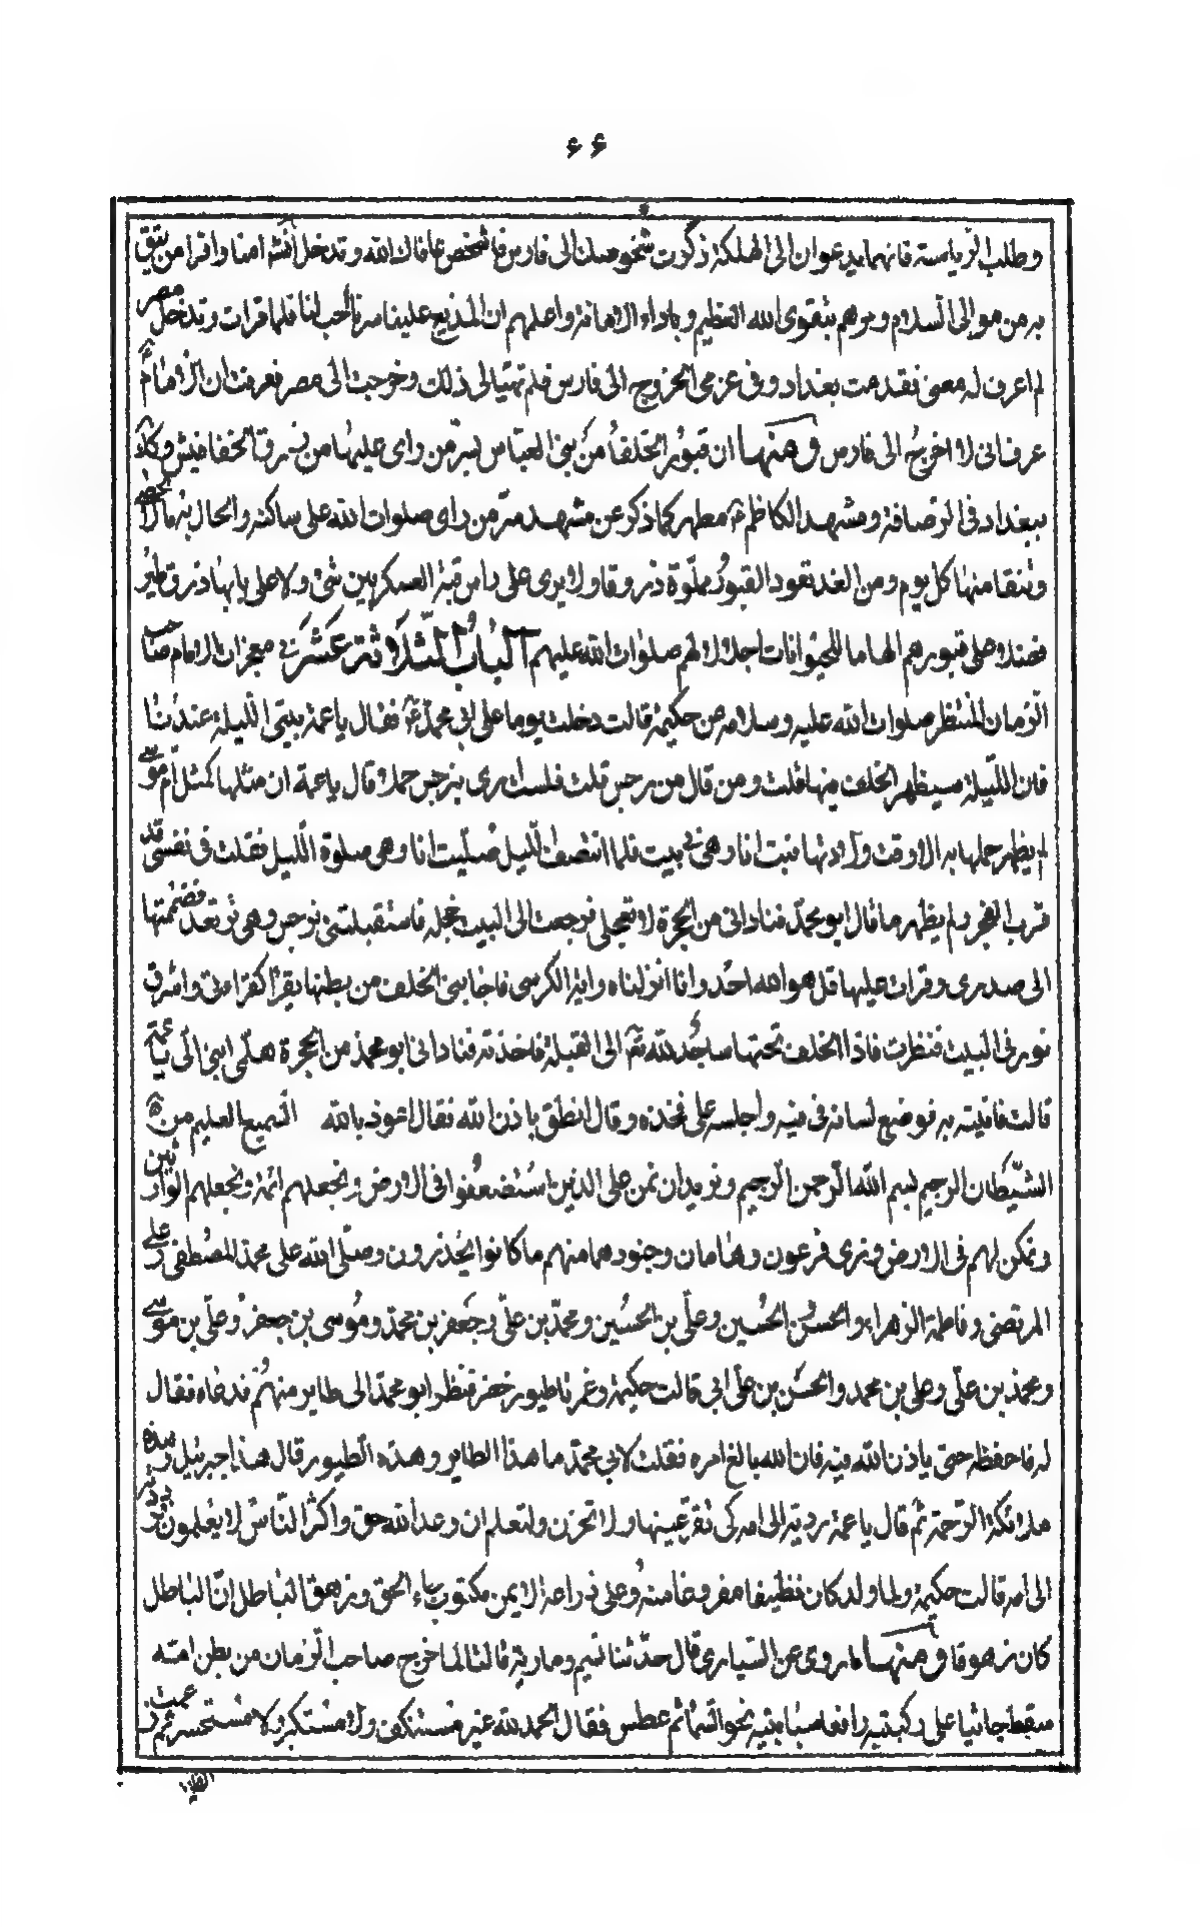 ۶۶
وطلب الرياسة فانهما يدعوان الى الهلكة ذكرت شخوصك الى فارس فاشخص عافاك الله وقد خل انشاء امنا واقرا من يثق
به من موالى السلام ومرهم بتقوى الله العظيم وباداء الامانة واعلمهم ان المذيع علينا سرنا حرب لنا فلما قرات وتدخل مصر
لم اعرف له معنى فقدمت بغداد وفى عزمى الخروج الى فارس فلم تهيا لى ذلك وخرجت الى مصر فعرفت ان الامام
عرف انى لا اخرج الى فارس ومنها ان قبور الخلفاء من بنى العباس بسر من راى عليها من ذرق الخفافيش
ببغداد فى الرصافة ومشهد الكاظم مطهر كما ذكر عن مشهد سر من راى صلوات الله على ساكنه والحال
وتنقا منها كل يوم ومن الغد تعود القبور مملوة ذرقا ولا يرى على راس قبة العسكريين شئ ولا على بابها ذرق طير
فضلا على قبورهم الهاما للحيوانات اجلالا لهم صلوات الله عليهم الباب الثلاثة عشر فى معجزات الامام صاحب
الزمان المنتظر صلوات الله عليه وسلامه عن حكيمة قالت دخلت يوما على ابى محمد فقال يا عمة بيتى الليلة عندنا
فان الليلة سيظهر الخلف فيها قلت وممن قال من نرجس قلت فلست ارى بنرجس حملا قال يا عمة ان مثلها كمثل ام موسى
لم يظهر حملها به الا وقت ولادتها فبت انا وهى فى بيت فلما انتصف الليل صليت انا وهى صلوة الليل فقلت فى نفسى قد
قرب الفجر ولم يظهر ما قال ابو محمد فنادانى من الحجرة لا تعجلى فرجعت الى البيت خجلة فاستقبلتنى نرجس وهى ترتعد فضممتها
الى صدرى وقرات عليها قل هو الله احد وانا انزلناه واية الكرسى فاجابنى الخلف من بطنها يقرا كقراءتى واشرق
نور فى البيت فنظرت فاذا الخلف تحتها ساجد لله تم الى القبلة فاخذته فنادانى ابو محمد من الحجرة هلمى ابنى الى يا عمة
قالت فاتيته به فوضع لسانه فى فيه واجلسه على فخذه وقال انطق باذن الله فقال اعوذ بالله السميع العليم من
الشيطان الرجيم بسم الله الرحمن الرحيم ونريد ان نمن على الذين استضعفوا فى الارض ونجعلهم ائمة ونجعلهم الوارثين
ونمكن لهم فى الارض ونرى فرعون وهامان وجنودهما منهم ما كانوا يحذرون وصلى الله على محمد المصطفى وعلى
المرتضى وفاطمة الزهراء والحسن الحسين وعلى بن الحسين ومحمد بن على وجعفر بن محمد وموسى بن جعفر وعلى بن موسى
ومحمد بن على وعلى بن محمد والحسن بن على ابى قالت حكيمة وغمرنا طيور خضر فنظر ابو محمد الى طاير منهم فدعاه فقال
له فاحفظه حتى ياذن الله فيه فان الله بالغ امره فقلت لابى محمد ما هذا الطاير وهذه الطيور قال هذا جبرئيل وهذه
ملائكة الرحمة ثم قال يا عمة رديه الى امه كى تقر عينها ولا تحزن ولتعلم ان وعد الله حق واكثر الناس لا يعلمون فرددته
الى امه قالت حكيمة ولما ولد كان نظيفا مفروغا منه وعلى ذراعه الايمن مكتوب جاء الحق وزهق الباطل ان الباطل
كان زهوقا ومنها ما روى عن السيارى قال حدثنا نسيم ومارية قالتا لما خرج صاحب الزمان من بطن امه
سقط جاثيا على ركبتيه رافعا سبابتيه نحو السماء ثم عطس فقال الحمد لله غير مستنكف ولا مستكبر ولا مستحسر ثم